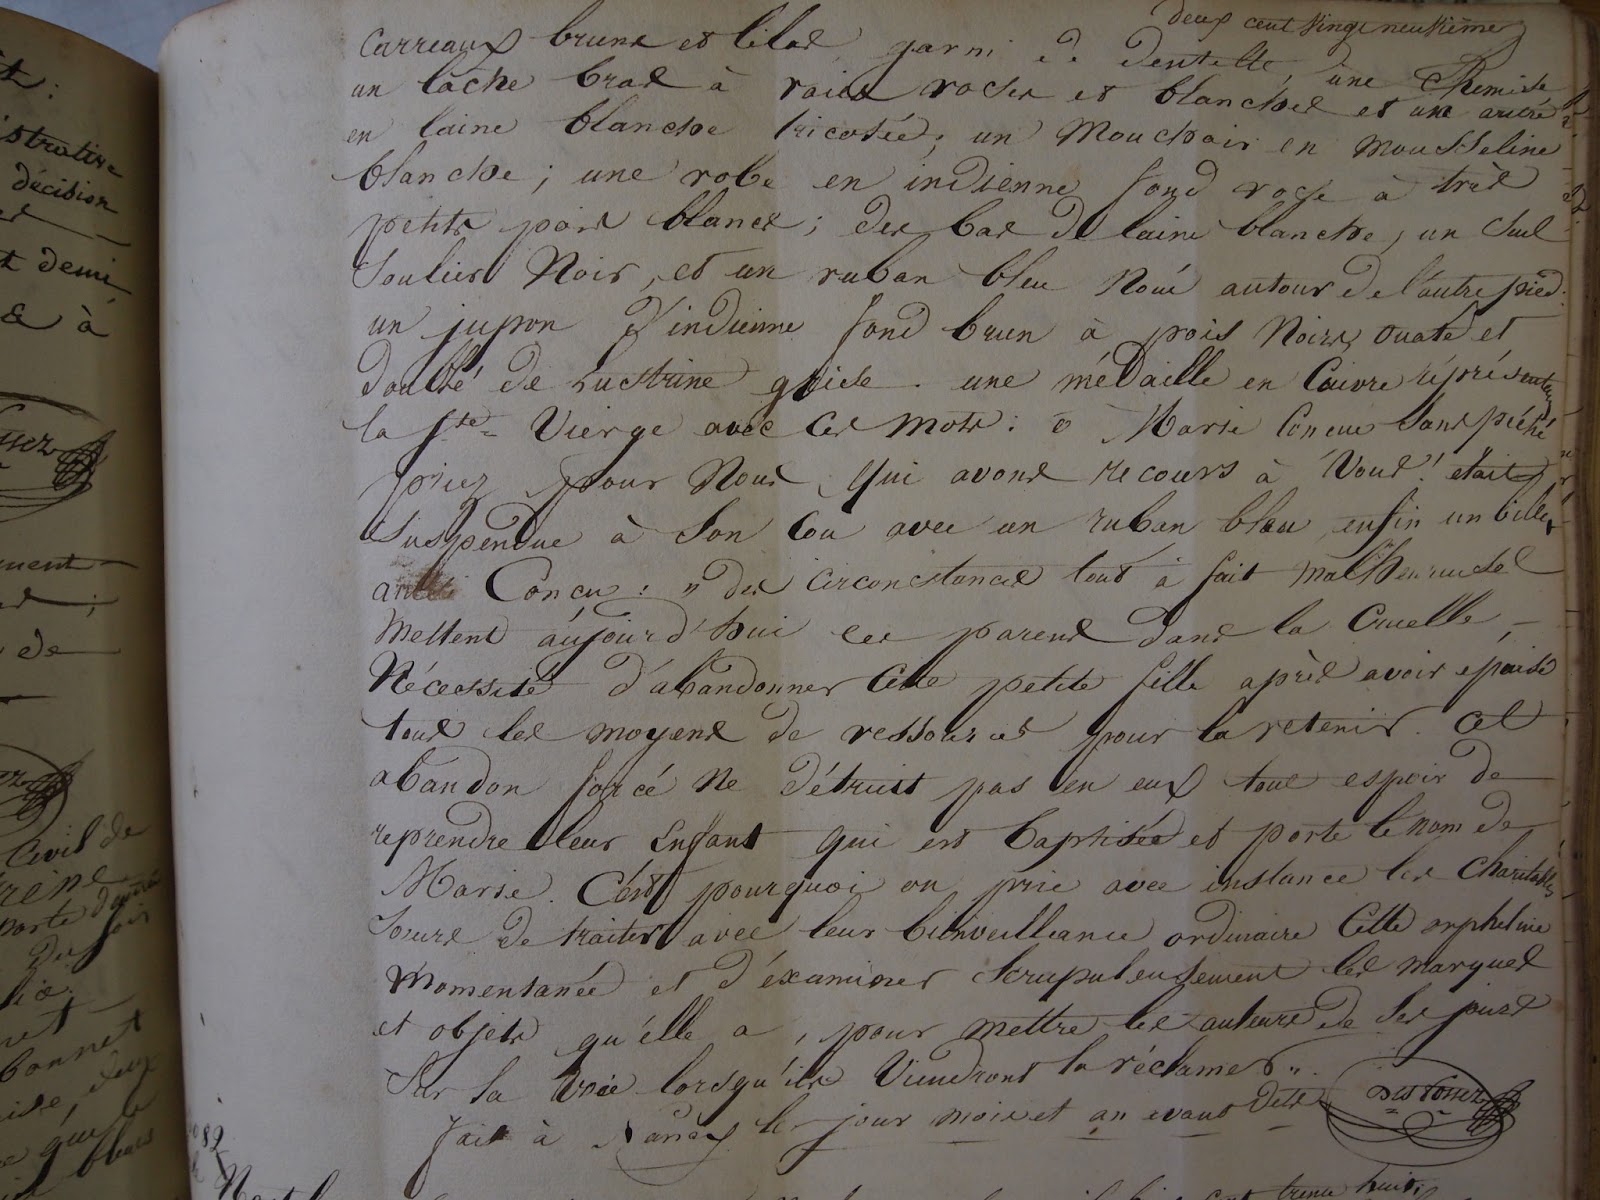 deux cent vingt neuvième
carreaux bruns et lilas garni de dentelle, une chemise
un cache bras à raies roses et blanches et une autre
en laine blanche tricotée; un mouchoir en mousseline
blanche; une robe en indienne fond rose à très
petits pois blancs; des bas de laine blanche, un seul
soulier noir, et un ruban bleu noué autour de l'autre pied.
un jupon d'indienne fond brun à pois noirs, ouaté et
doublé de lustrine grise. une médaille en cuivre réprésentant
la Ste Vierge avec ces mots: ô Marie concue sans péché
priez pour nous, qui avons recours à Vous! etait
suspendue à son cou avec un ruban bleu, enfin un billet
concu: " des circonstances tout à fait malheureuses
mettent aujourd'hui les parens dans la cruelle
Nécessité d'abandonner cette petite fille après avoir epuisé
tous les moyens de ressources pour la retenir. Cet
abandon forcé ne détruit pas en eux tout espoir de
reprendre leur enfant qui est baptisée et porte le nom de
Marie. C'est pourquoi on prie avec instance les charitables
soeurs de traiter avec leur bienveillance ordinaire cette orpheline
momentanée et d'éxaminer scrupuleusement les marques
et objets qu'elle a, pour mettre les auteurs de ses jours
sur la voie lorsqu'ils viendront la réclamer ".
fait à Nancy les jour mois et an avant dits
décision
et demi
& à
de
Civil de
porte
du soir
bonnet
bleus